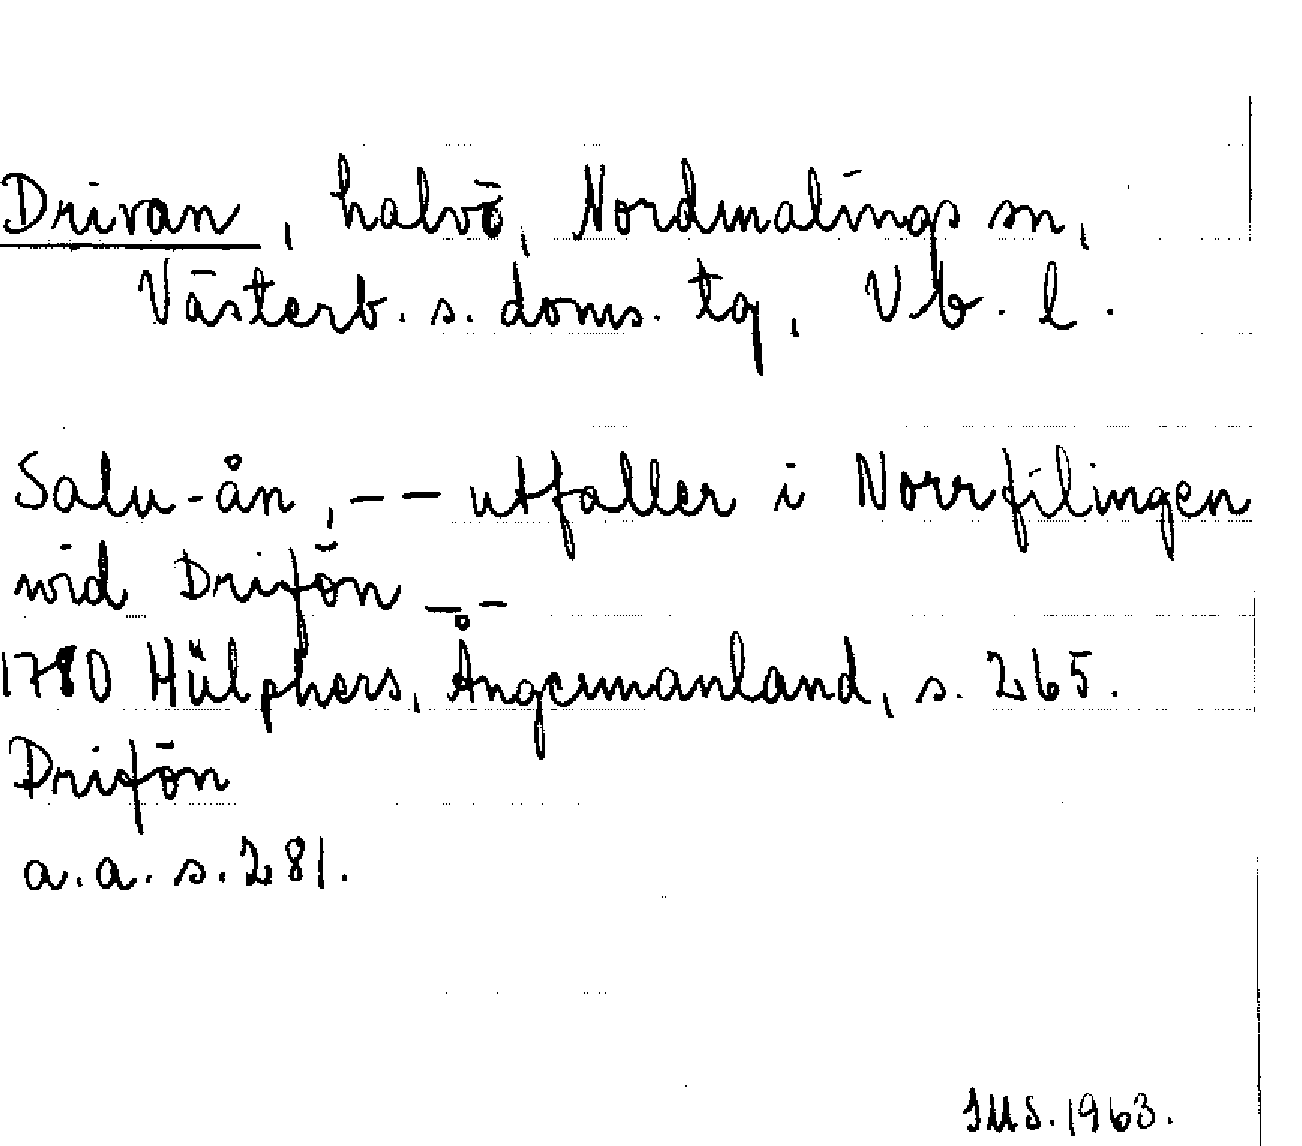 Drivan, halvö, Nordmalings sn,
Västerb. s. doms. tg, Vb. l.
Salu-ån, -- utfaller i Norrfilingen
wid Drifön --
1780 Hülphers, Ångermanland, s. 265.
Drifön
a.a. s. 281.
IMS. 1963.